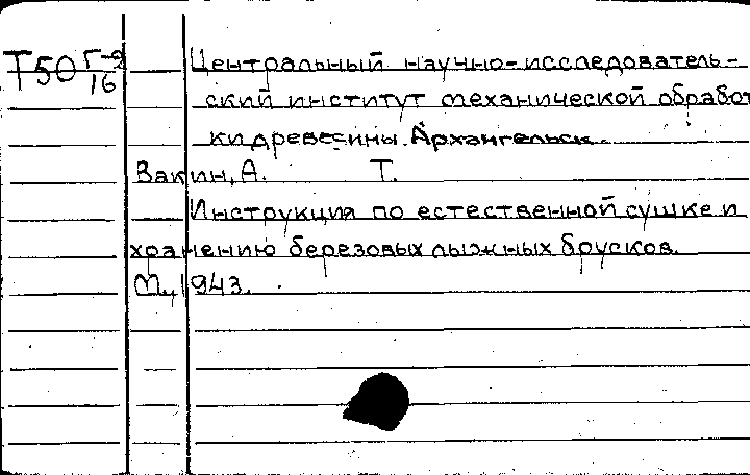 Т50 Г-9/16 Центральный научно-исследователь-
ский институт механической обработ
ки древесины. Архангельск.
Вакин, А. Т.
Инструкция по естественной сушке и
хранению березовых лыжных брусков.
М., 1943.